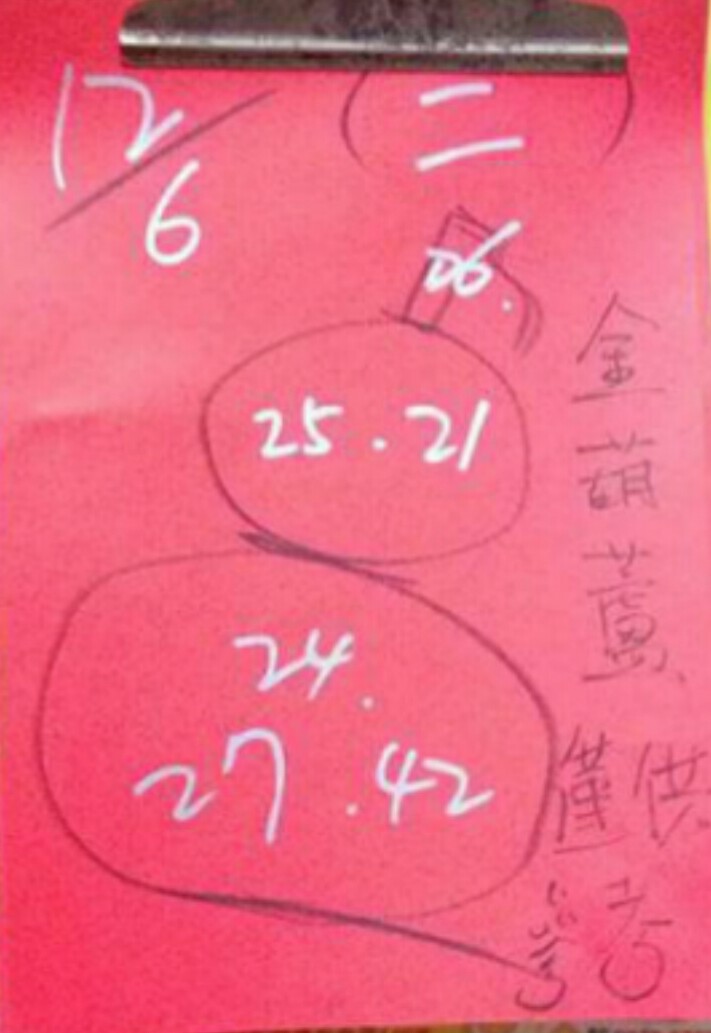 12/6 (二)
06.
25.21
24.
27.42
金葫蘆
僅供
參考